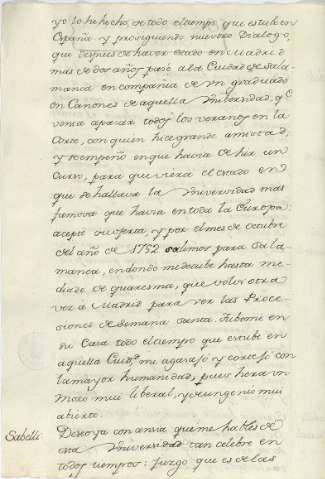 yo lo he hecho, en todo el tiempo, que estube en
España y prosiguiendo nuestro Dialogo,
que despues de haver estado en Madrid
más de dos años pasé a la Ciudad de Sala-
manca en compañia de un graduado
en Canones de aquella Universidad, qe
venia a pasar todos los veranos en la
Corte, con quien hice grande amistad,
y se empeño en que havia de hir un
Curso, para que viera el estado en
que se hallava la Universidad mas
famosa que havia en toda la Europa:
acepté su oferta, y por el mes de octubre
del año de 1752 salimos para Sala-
manca, en donde me detube hasta me-
diado de quaresma, que volvi otra
vez á Madrid para ver las Proce-
siones de Semana Santa. Tubome en
su Casa todo el tiempo que estube en
aquella Ciudd, me agasajó y cortejó con
la mayor humanidad, pues hera un
Mozo mui liberal, y de un genio mui
abierto.
Sabelli Deseo ya con ansia que me hables de
esa Universidad tan celebre en
todos tiempos: juzgo que es de las